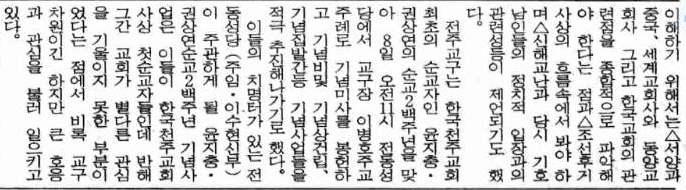 이해하기 위해서는△서양과
중국、세계교회사와 동양교
회사 그리고 한국교회의 관
련성을 종합적으로 파악해
야 한다는 점과△조선후기
사상의 흐름속에서 봐야 하
며△신해교난과 당시 기호
남인들의 정치적 입장과의
관련성등이 제언되기도 했
다。
전주교구는 한국천주교회
최초의 순교자인 윤지충·
권상연의 순교2백주년을 맞
아 8일 오전11시 전동성
당에서 교구장 이병호주교
주례로 기념미사를 봉헌하
고 기념비및 기념상건립、
기념집발간등 기념사업들을
적극 추진해나가기로 했다。
이들의 치명터가 있는 전
동성당(주임·이수현신부)
이 주관하게 될 윤지충·
권상연순교2백주년 기념사
업은 이들이 한국천주교회
사상 첫순교자들인데 반해
그간 교회가 별다른 관심
을 기울이지 못한 부분이
었다는 점에서 비록 교구
차원이긴 하지만 큰 호응
과 관심을 불러 일으키고
있다。